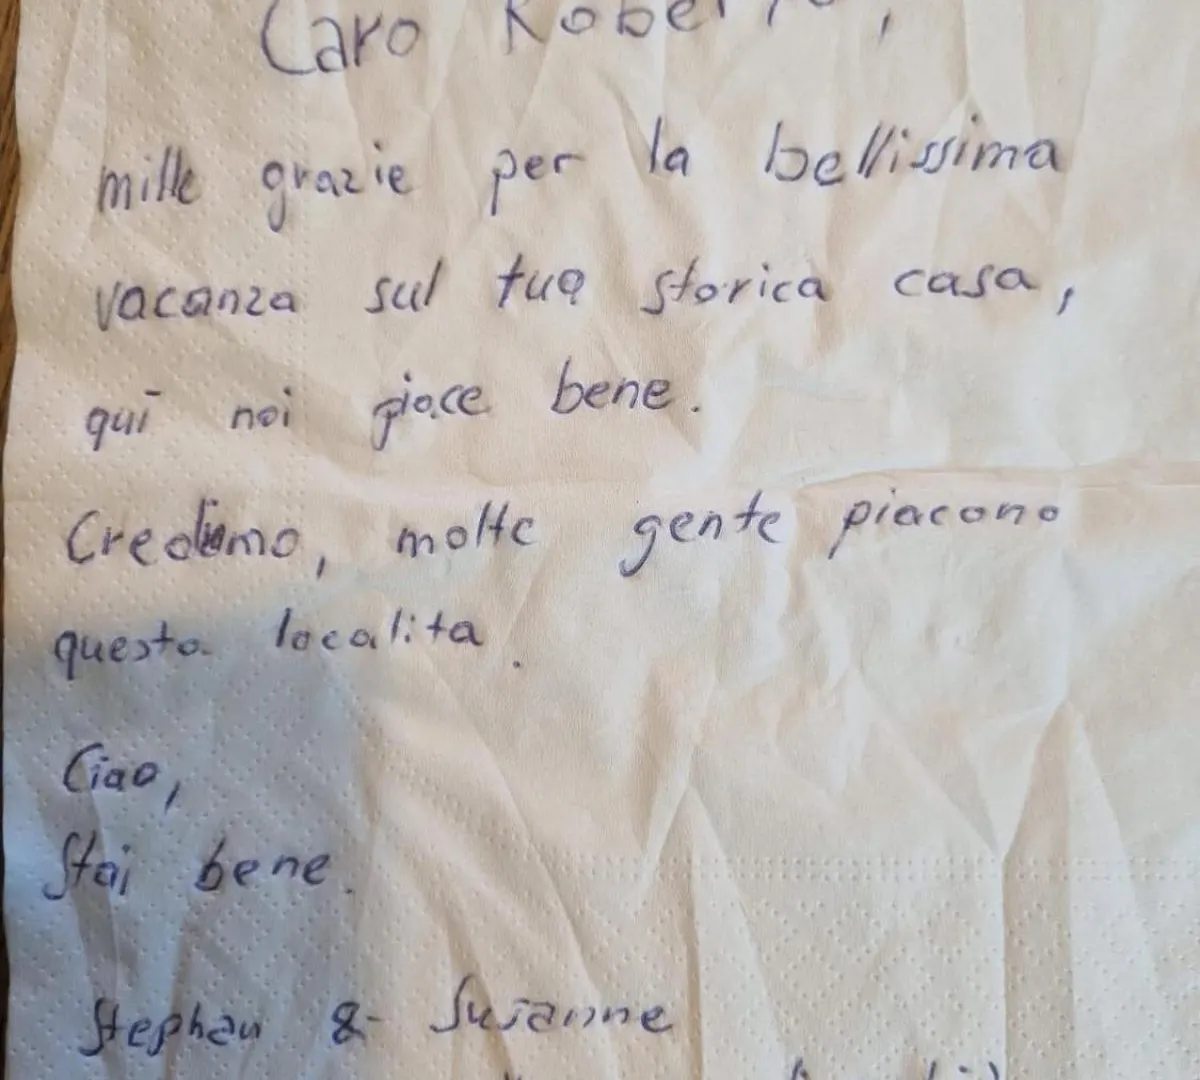 Caro Roberto,
mille grazie per la bellissima
vacanza sul tua storica casa,
qui noi piace bene.
Crediamo, molte gente piacono
questa localita.
Ciao,
Stai bene.
Stephan & Susanne